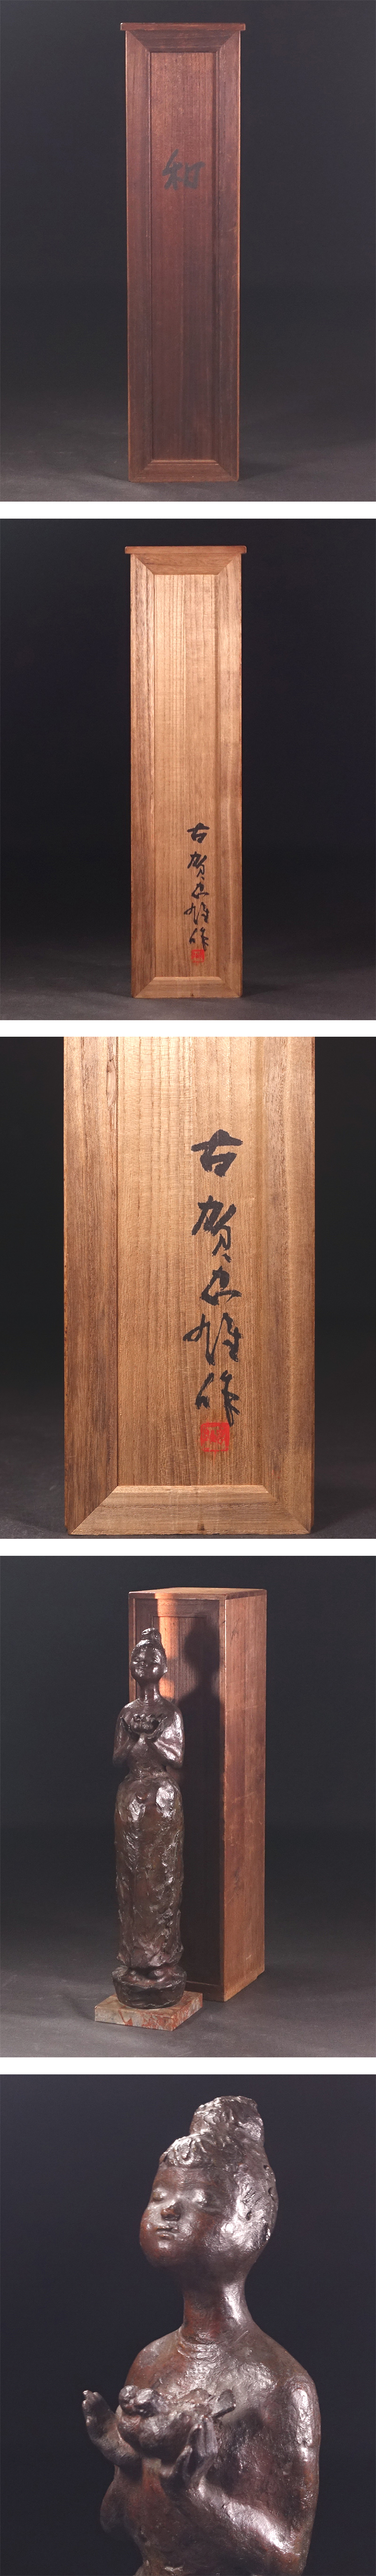 和
古賀忠雄作
古賀忠雄作